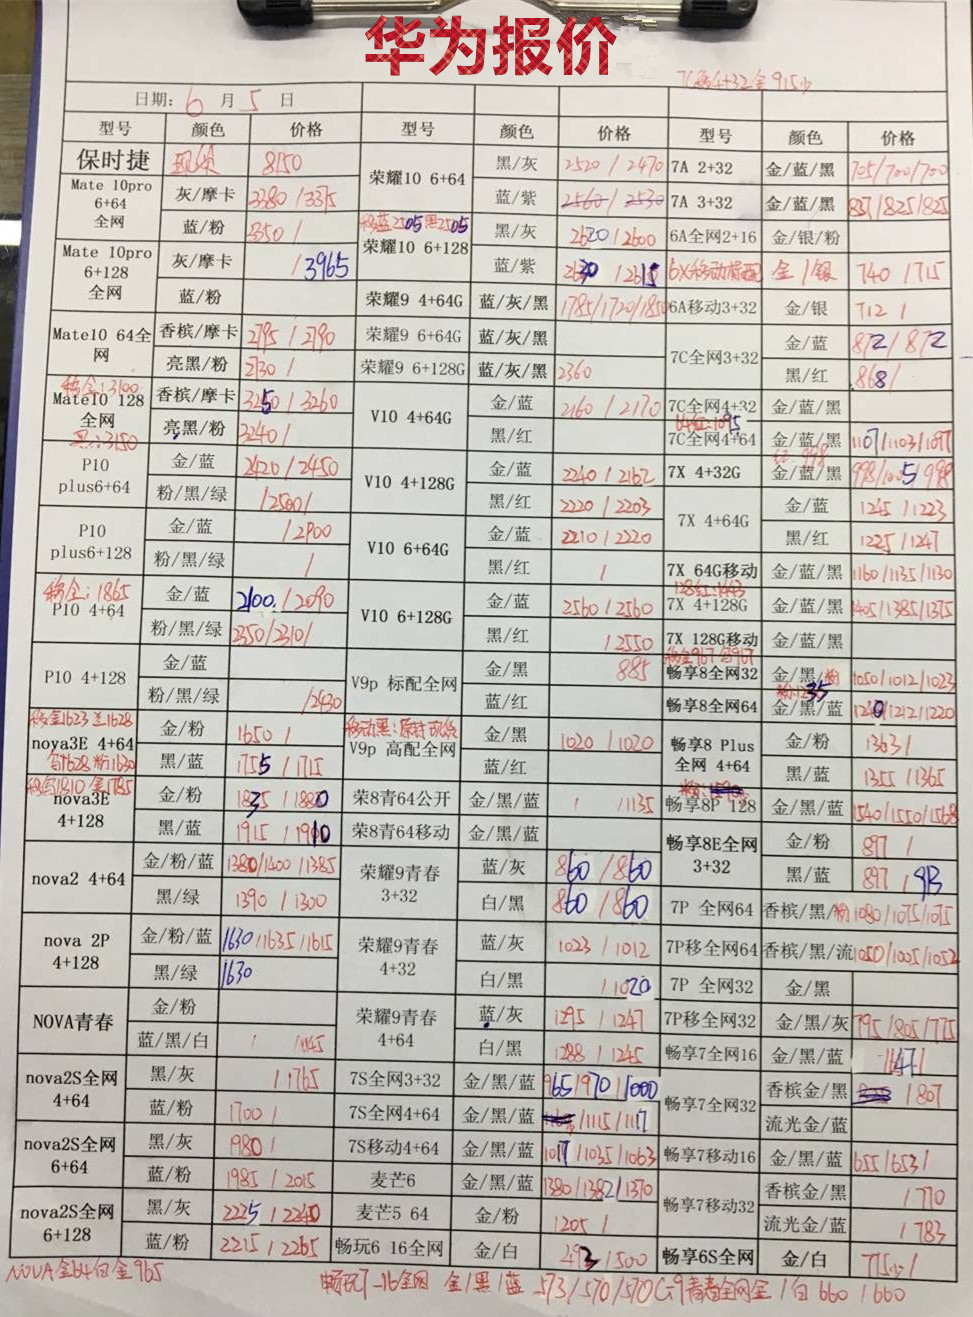 华为报价
7C移4+32金915少
日期: 6 月 5 日
型号 颜色 价格 型号 颜色 价格 型号 颜色 价格
保时捷 现货 8150
Mate 10pro 6+64 全网 灰/摩卡 3380 / 3375
蓝/粉 3350 /
Mate 10pro 6+128 全网 灰/摩卡 / 3965
蓝/粉
Mate10 64全网 香槟/摩卡 2795 / 2790
亮黑/粉 2730 /
移金:3100
Mate10 128 全网 香槟/摩卡 3250 / 3260
亮黑/粉 3240 /
黑:3150
P10 plus6+64 金/蓝 2420 / 2450
粉/黑/绿 / 2500 /
P10 plus6+128 金/蓝 / 2900
粉/黑/绿 /
移金:1865
P10 4+64 金/蓝 2100. / 2090
粉/黑/绿 2350 / 2310 /
P10 4+128 金/蓝
粉/黑/绿 / 2430
移金1623 兰1628
nova3E 4+64 金/粉 1650 /
黑/蓝 1755 / 1715
白1628 粉1630
移白1810 金1785
nova3E 4+128 金/粉 1835 / 1880
黑/蓝 1915 / 1910
nova2 4+64 金/粉/蓝 1380 / 1400 / 1385
黑/绿 1390 / 1300
nova 2P 4+128 金/粉/蓝 1630 / 1635 / 1615
黑/绿 1630
NOVA青春 金/粉
蓝/黑/白 / 1145
nova2S全网 4+64 黑/灰 / 1765
蓝/粉 1700 /
nova2S全网 6+64 黑/灰 1980 /
蓝/粉 1985 / 2015
nova2S全网 6+128 黑/灰 2225 / 2240
蓝/粉 2215 / 2265
荣耀10 6+64 黑/灰 2520 / 2470
蓝/紫 2560 / 2530
移蓝2505 黑2505
荣耀10 6+128 黑/灰 2620 / 2600
蓝/紫 2630 / 2615
荣耀9 4+64G 蓝/灰/黑 1785 / 1720 / 1850
荣耀9 6+64G 蓝/灰/黑
荣耀9 6+128G 蓝/灰/黑 2360
V10 4+64G 金/蓝 2160 / 2170
黑/红
V10 4+128G 金/蓝 2240 / 2162
黑/红 2220 / 2203
V10 6+64G 金/蓝 2210 / 2220
黑/红 /
V10 6+128G 金/蓝 2560 / 2560
黑/红 / 2550
V9p 标配全网 金/黑 885
蓝/红
移动黑:原封现货
V9p 高配全网 金/黑 1020 / 1020
蓝/红
荣8青64公开 金/黑/蓝 / / 1135
荣8青64移动 金/黑/蓝
荣耀9青春 3+32 蓝/灰 860 / 860
白/黑 860 / 860
荣耀9青春 4+32 蓝/灰 1023 / 1012
白/黑 / 1020
荣耀9青春 4+64 蓝/灰 1295 / 1247
白/黑 1288 / 1245
7S全网3+32 金/黑/蓝 965 / 970 / 1000
7S全网4+64 金/黑/蓝 / 1115 / 1117
7S移动4+64 金/黑/蓝 1017 / 1035 / 1063
麦芒6 金/黑/蓝 1380 / 1382 / 1370
麦芒5 64 金/粉 1205 /
畅玩6 16全网 金/白 493 / 500
7A 2+32 金/蓝/黑 705 / 700 / 700
7A 3+32 金/蓝/黑 837 / 825 / 825
6A全网2+16 金/银/粉
6X移动标配 金 / 银 740 / 715
6A移动3+32 金/银 712 /
7C全网3+32 金/蓝 872 / 872
黑/红 868 /
7C全网4+32 金/蓝/黑
64红:1095
7C全网4+64 金/蓝/黑 1107 / 1103 / 1097
红 998
7X 4+32G 金/蓝/黑 998 / 1005 / 998
7X 4+64G 金/蓝 1245 / 1223
黑/红 1225 / 1247
7X 64G移动 金/蓝/黑 1160 / 1135 / 1130
128红:1443
7X 4+128G 金/蓝/黑 1405 / 1385 / 1375
7X 128G移动 金/蓝/黑
移金967 白967
畅享8全网32 金/黑/粉 1050 / 1012 / 1023
粉1235
畅享8全网64 金/黑/蓝 1240 / 1212 / 1220
畅享8 Plus 全网 4+64 金/粉 1363 /
黑/蓝 1355 / 1365
畅享8P 128 金/黑/蓝 1540 / 1550 / 1568
畅享8E全网 3+32 金/粉 897 /
黑/蓝 897 / 913
7P 全网64 香槟/黑/粉 1080 / 1075 / 1075
7P移全网64 香槟/黑/流 1050 / 1005 / 1052
7P 全网32 金/黑
7P移全网32 金/黑/灰 795 / 805 / 775
畅享7全网16 金/黑/蓝 / 647 /
畅享7全网32 香槟金/黑 / 807
流光金/蓝
畅享7移动16 金/黑/蓝 655 / 653 /
畅享7移动32 香槟金/黑 / 770
流光金/蓝 / 783
畅享6S全网 金/白 775少 /
NOVA金64白金965
畅玩7-16全网 金/黑/蓝 573 / 570 / 570 G9青春全网金 / 白 660 / 660